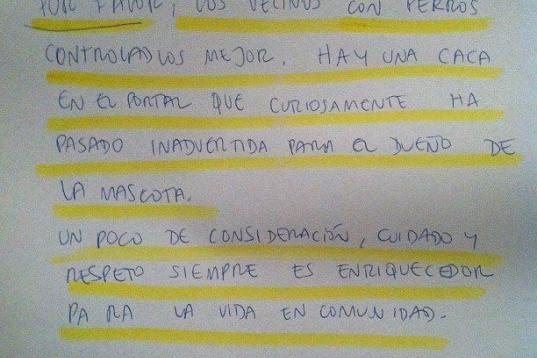 POR FAVOR, LOS VECINOS CON PERROS
CONTROLADLOS MEJOR. HAY UNA CACA
EN EL PORTAL QUE CURIOSAMENTE HA
PASADO INADVERTIDA PARA EL DUEÑO DE
LA MASCOTA.
UN POCO DE CONSIDERACIÓN, CUIDADO Y
RESPETO SIEMPRE ES ENRIQUECEDOR
PARA LA VIDA EN COMUNIDAD.